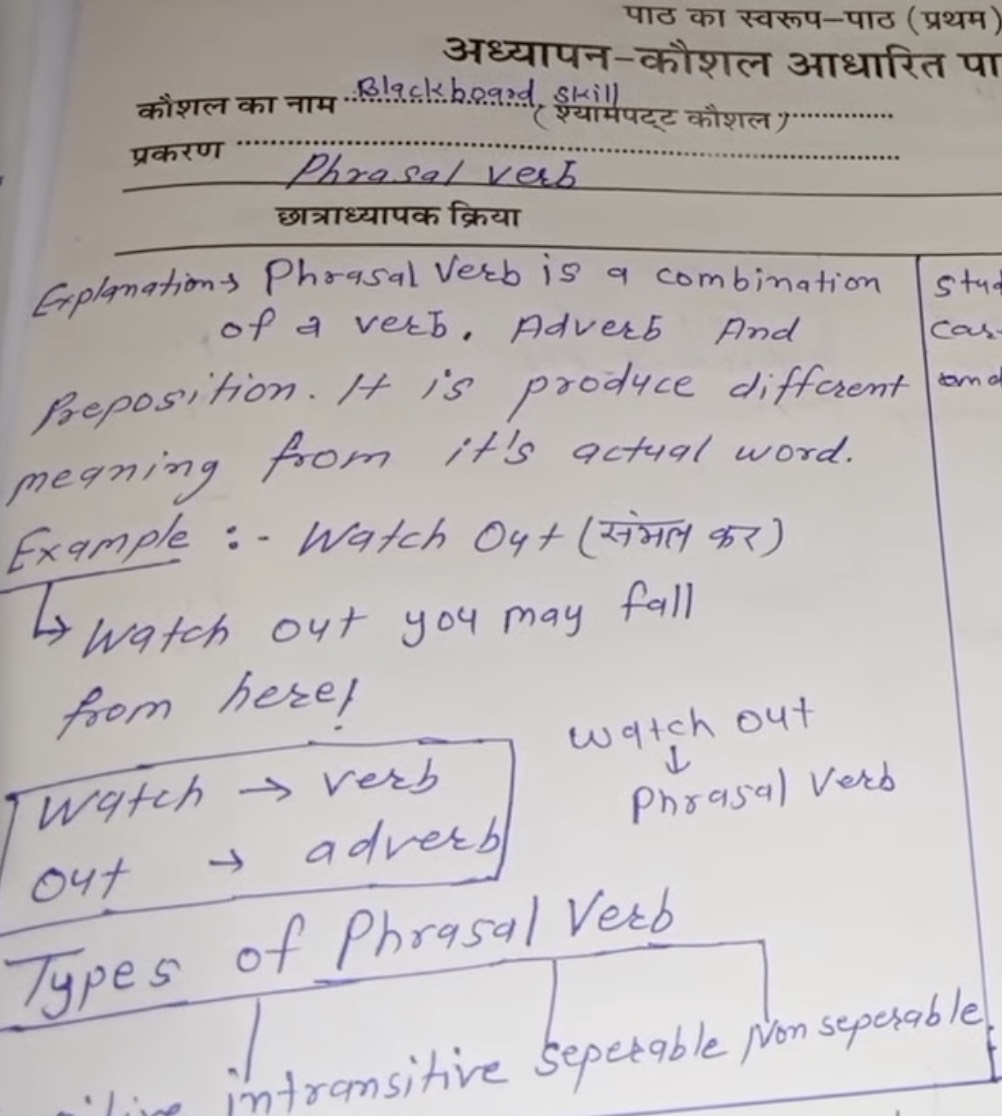 पाठ का स्वरूप-पाठ (प्रथम)
अध्यापन-कौशल आधारित पा
कौशल का नाम Blackboard skill
(श्यामपट्ट कौशल)
प्रकरण Phrasal verb
छात्राध्यापक क्रिया
Explanation→ Phrasal Verb is a combination
of a verb. Adverb And
Preposition. It is produce different
meaning from it's actual word.
Example :- Watch Out (संभल कर)
↳ Watch out you may fall
from here!
Watch → verb
out → adverb
Watch out
↓
Phrasal Verb
Types of Phrasal Verb
intransitive seperable Non seperable